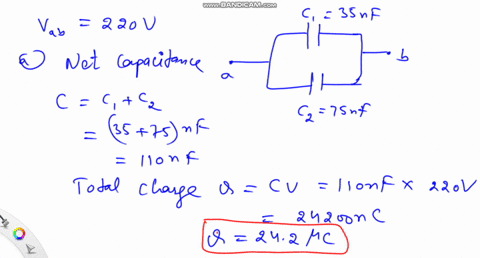 www.BANDICAM.com
V_ab = 220V
C₁ = 35nF
a) Net Capacitance
a
b
C₂ = 75nF
C = C₁ + C₂
= (35+75) nF
= 110nF
Total charge Q = CV = 110nF × 220V
= 24200nC
Q = 24.2 μC